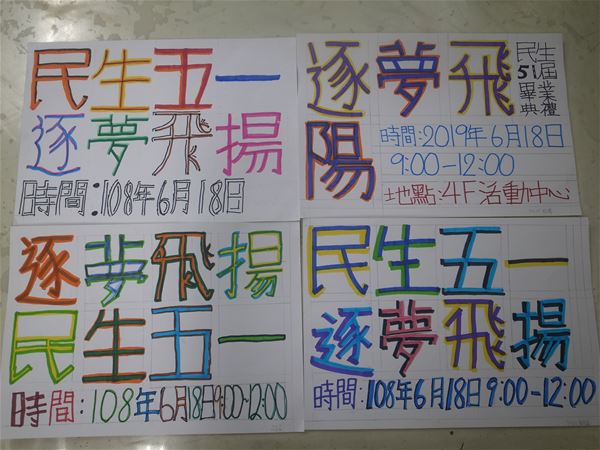 民生五一
逐夢飛揚
時間:108年6月18日
逐夢飛
陽
民生
51屆
畢業
典禮
時間:2019年6月18日
9:00-12:00
地點:4F活動中心
逐夢飛揚
民生五一
時間:108年6月18日9:00-12:00
民生五一
逐夢飛揚
時間:108年6月18日9:00-12:00